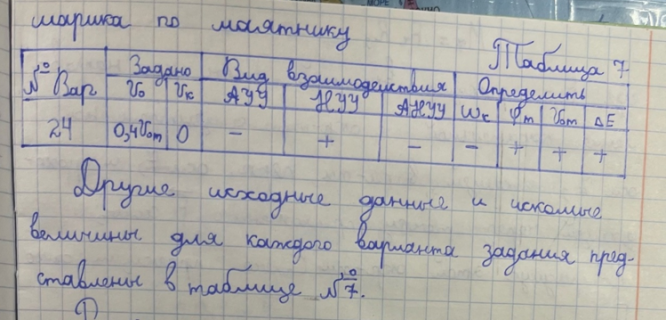 шарика по маятнику
Таблица 7
№ Вар Задано Вид взаимодействия Определить
V₀ Vк АУУ НУУ АНУУ ωк φm V₀m ΔE
24 0,4V₀m 0 − + − − + + +
Другие исходные данные и искомые
величины для каждого варианта задания пред-
ставлены в таблице №7.